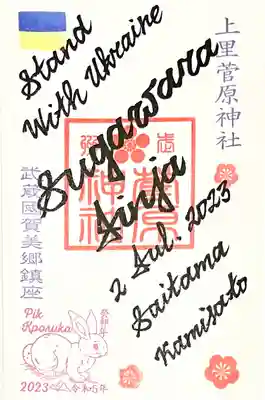 Stand
With Ukraine
上里菅原神社
Sugawara
Jinja
2 Jul. 2023
Saitama
Kamisato
武蔵國賀美郷鎮座
Рік
Кролика
2023 令和5年